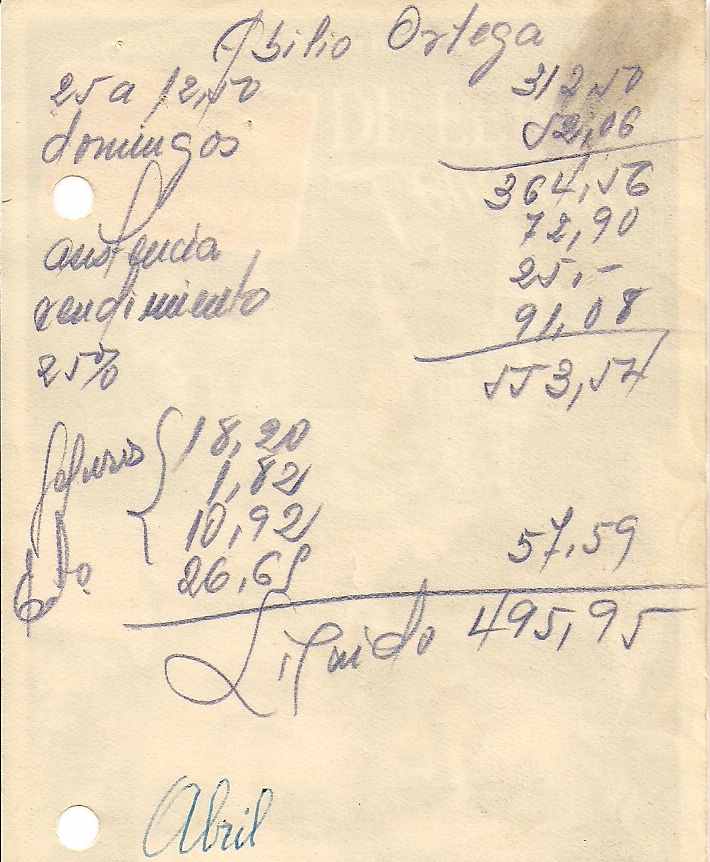 Abilio Ortega
25 a 12,50 312,50
domingos 52,06
364,56
asistencia 72,90
rendimiento 25,-
25% 91,08
553,54
18,20
Seguros 1,82
10,92
26,65 57,59
Liquido 495,95
Abril